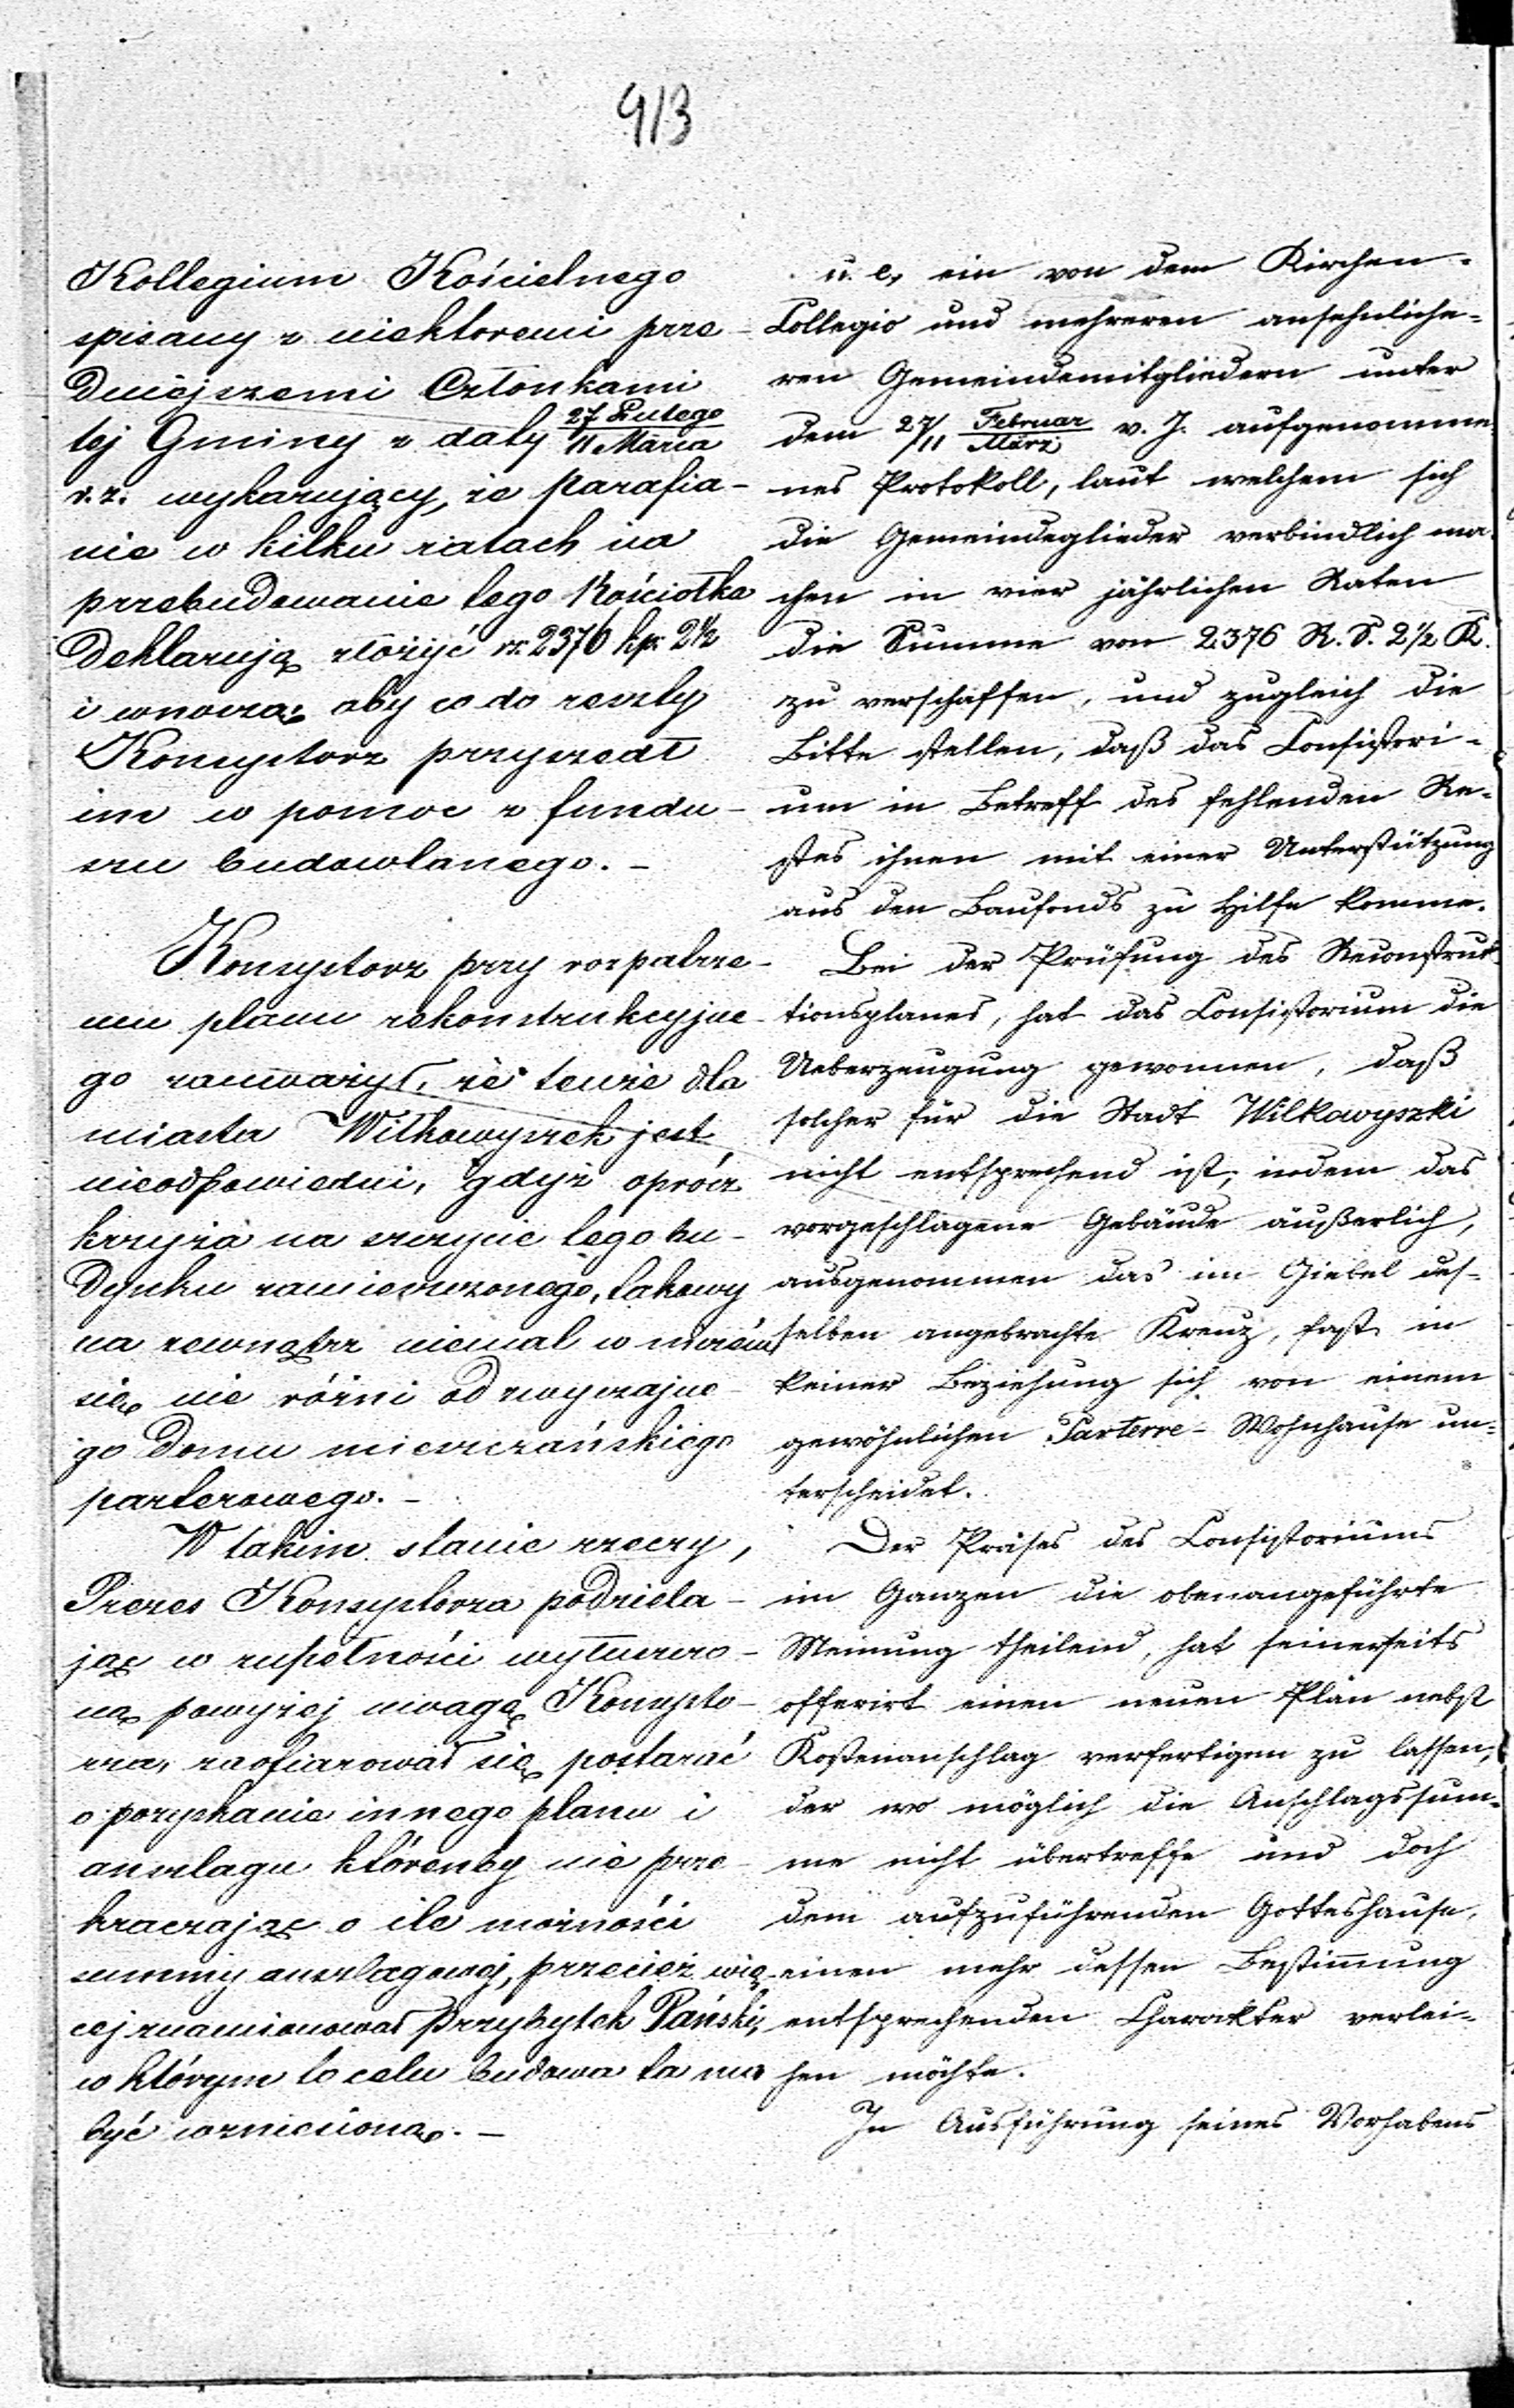 913
Kollegium Kościelnego
spisany z niektoremi prze-
dniejszemi Członkami
tej Gminy z daty 27 Lutego / 11 Marca
r. z. wykazujący, że Parafia-
nie w kilku ratach na
przebudowanie tego Kościołka
deklarują złożyć rs. 2376 kp. 2½
i wnoszą, aby co do reszty
Konsystorz przyszedł
im w pomoc z fundu-
szu budowlanego. –
Konsystorz przy rozpatrze-
niu planu rekonstrukcyjne-
go zauważył, że tenże dla
miasta Wiłkowyszek jest
nieodpowiedni, gdyż oprócz
krzyża na szczycie tego bu-
dynku zamieszczonego, takowy
na zewnątrz niemal w niczém
się nie różni od zwyczajne-
go domu mieszczańskiego
parterowego. –
W takim stanie rzeczy,
Prezes Konsystorza podziela-
jąc w zupełności wyłuszczo-
ną powyżej uwagę Konsysto-
rza, zaofiarował się postarać
o pozyskanie innego planu i
anszlagu którenby nie prze-
kraczając o ile możności
summy anszlagowej, przecież wię-
cej znamionował Przybytek Pański,
w którym to celu budowa ta ma
być wzniesioną. –
u. e, ein von dem Kirchen-
Collegio und mehreren ansehnliche-
ren Gemeindemitgliedern unter
dem 27/11 Februar/März v. J. aufgenomme-
nes Protokoll, laut welchem sich
die Gemeindeglieder verbindlich ma-
chen in vier jährlichen Raten
die Summe von 2376 R. S. 2½ K.
zu verschaffen, und zugleich die
Bitte stellen, daß das Consistori-
um in Betreff des fehlenden Re-
stes ihnen mit einer Unterstützung
aus den Baufonds zu Hilfe komme.
Bei der Prüfung des Reconstruk-
tionsplanes, hat das Consistorium die
Ueberzeugung gewonnen, daß
solcher für die Stadt Wilkowyszki
nicht entsprechend ist, indem das
vorgeschlagene Gebäude äußerlich,
ausgenommen das im Giebel des-
selben angebrachte Kreuz, fast in
keiner Beziehung sich von einem
gewöhnlichen Parterre-Wohnhause un-
terscheidet.
Der Präses des Consistoriums
im Ganzen die obenangeführte
Meinung theilend, hat seinerseits
offerirt einen neuen Plan nebst
Kostenanschlag verfertigen zu lassen,
der wo möglich die Anschlagssum-
me nicht übertreffe und doch
dem aufzuführenden Gotteshause,
einen mehr dessen Bestimmung
entsprechenden Charakter verlei-
hen möchte.
In Ausführung seines Vorhabens